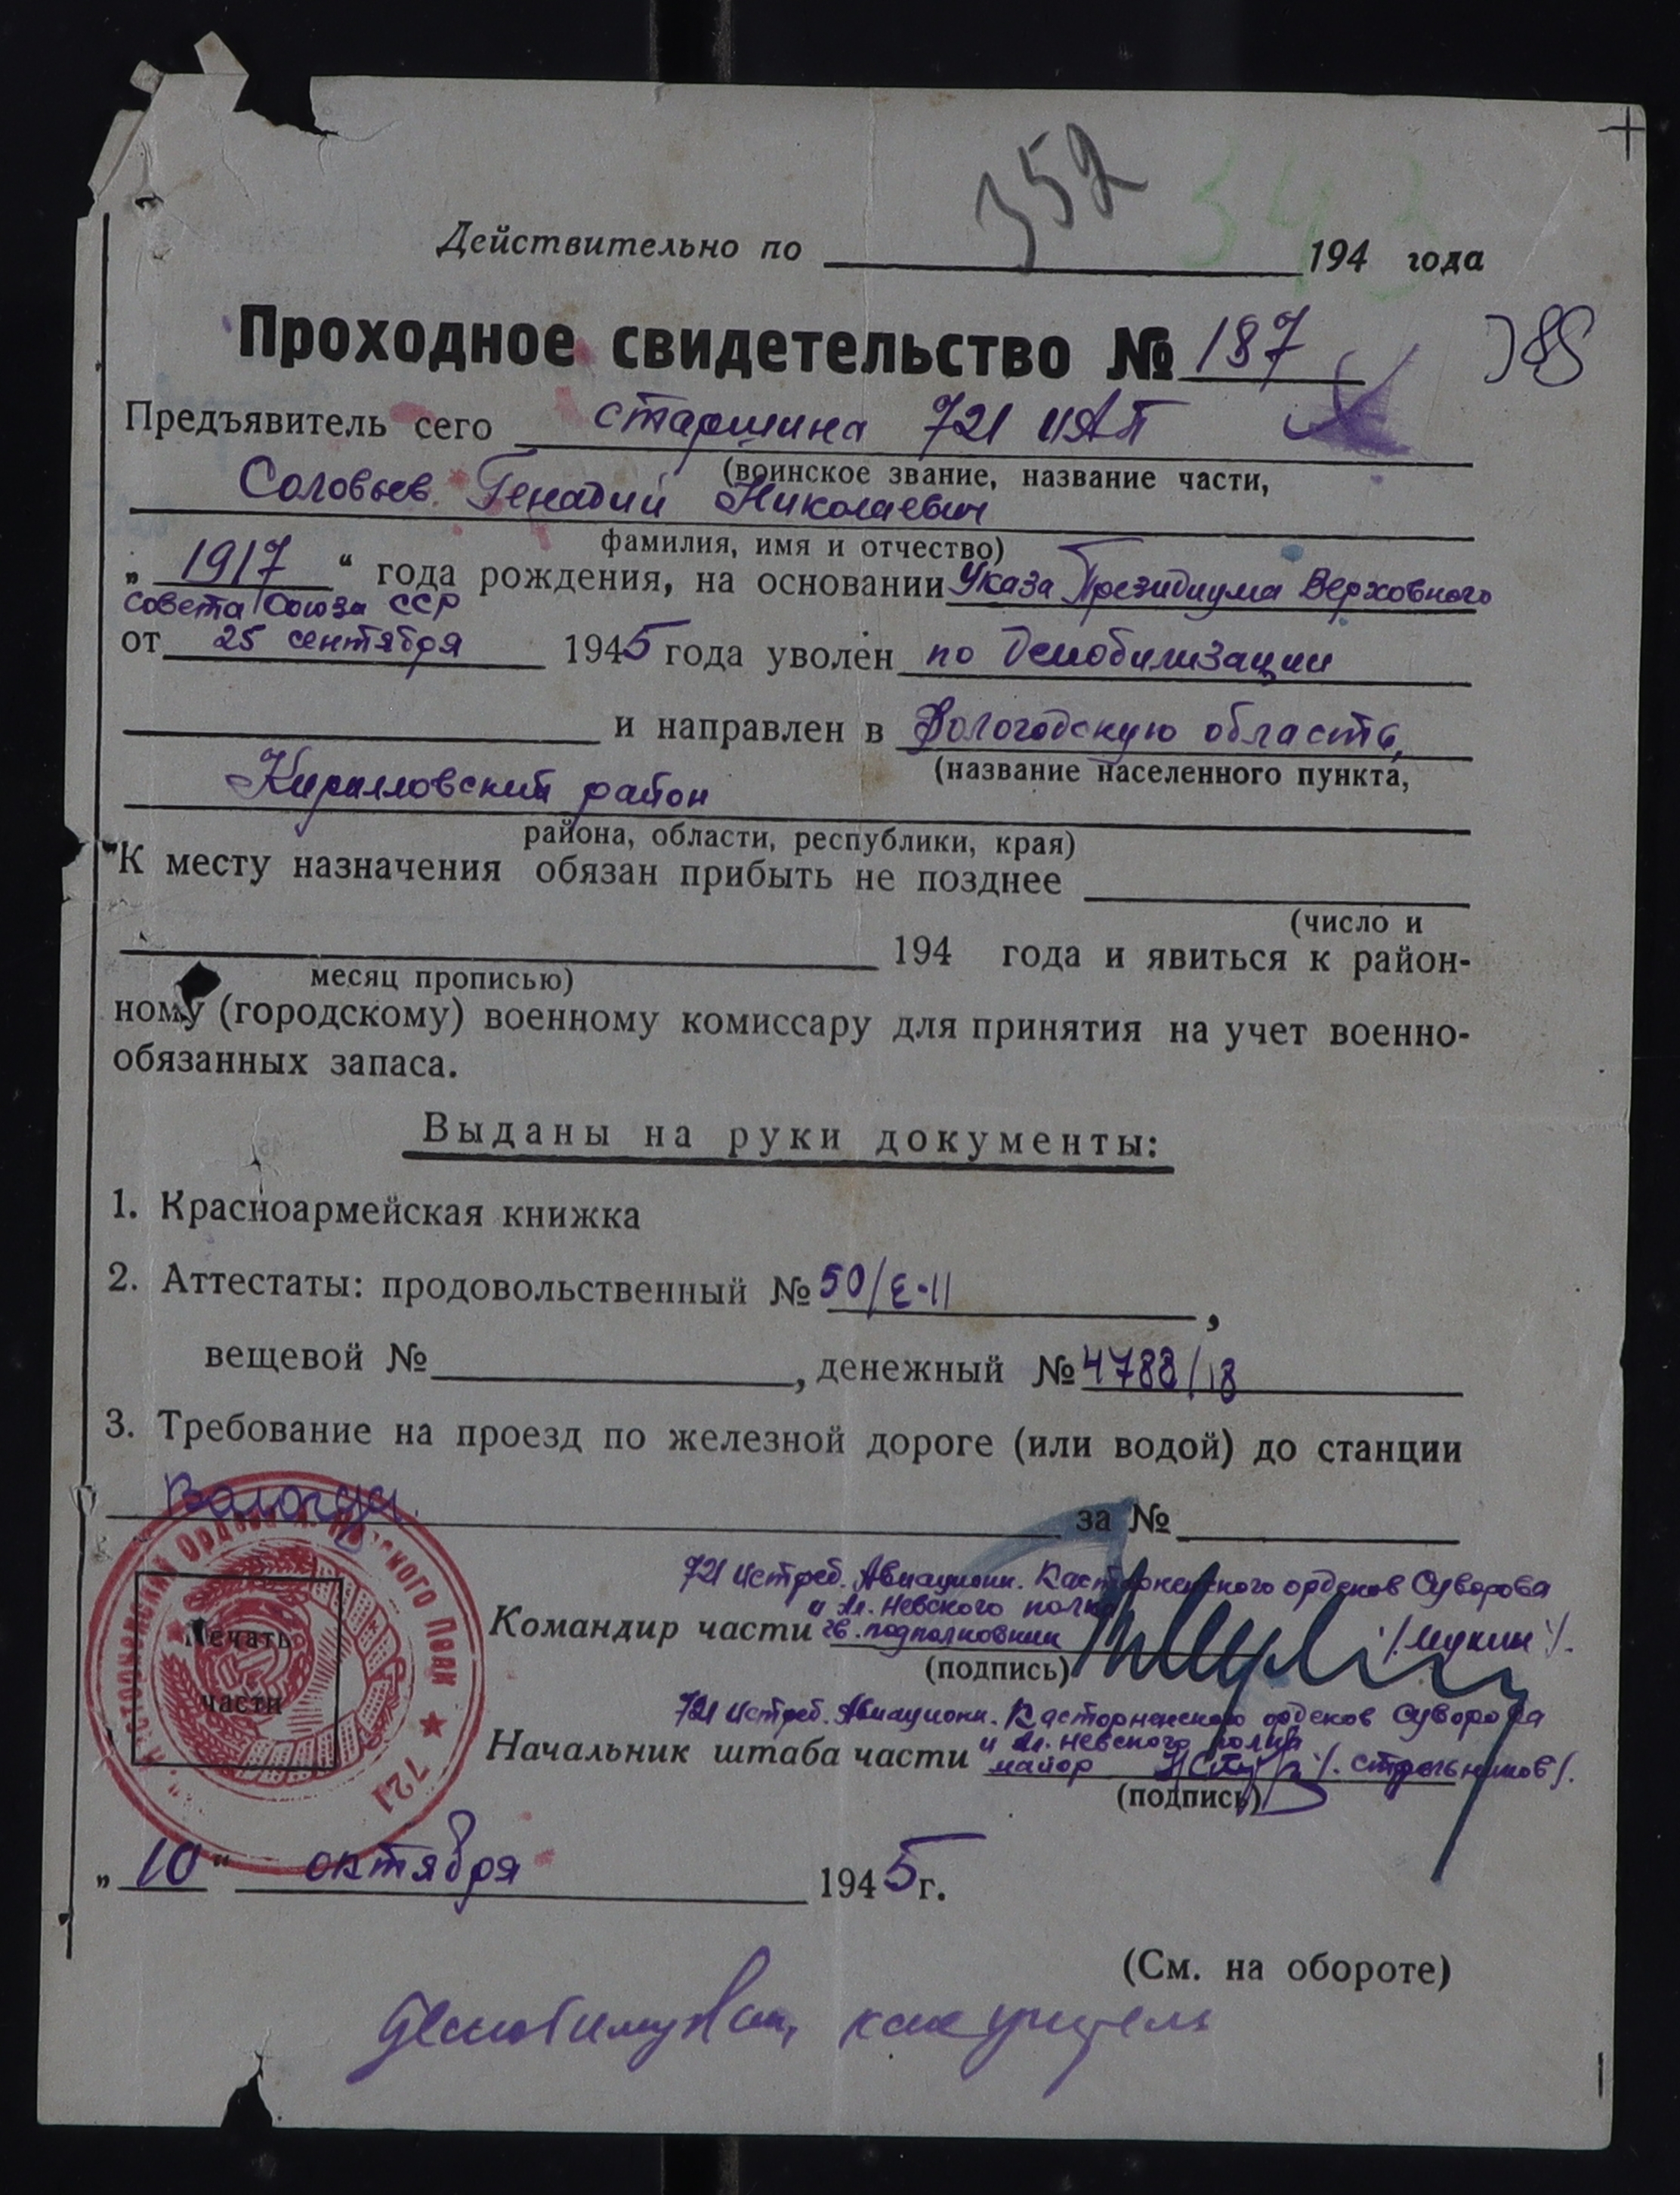 352 343
Действительно по 194 года
Проходное свидетельство № 187
Предъявитель сего старшина 721 ИАП
(воинское звание, название части,
Соловьев Генадий Николаевич
фамилия, имя и отчество)
„ 1917 “ года рождения, на основании Указа Президиума Верховного
Совета Союза ССР
от 25 сентября 1945 года уволен по демобилизации
и направлен в Вологодскую область,
(название населенного пункта,
Кирилловский район
района, области, республики, края)
К месту назначения обязан прибыть не позднее
(число и
194 года и явиться к район-
месяц прописью)
ному (городскому) военному комиссару для принятия на учет военно-
обязанных запаса.
Выданы на руки документы:
1. Красноармейская книжка
2. Аттестаты: продовольственный № 50/Е-11 ,
вещевой № , денежный № 4788/18
3. Требование на проезд по железной дороге (или водой) до станции
Вологда за №
721 Истреб. Авиационн. Касторненского орденов Суворова
и Ал. Невского полка
Командир части гв. подполковник /Шукин/.
(подпись)
721 Истреб. Авиационн. Касторненского орденов Суворова
и Ал. Невского полка
Начальник штаба части майор /. Стрельников/.
(подпись)
Печать
части
721
„ 10 “ октября 1945 г.
(См. на обороте)
Демобилизован, как учитель